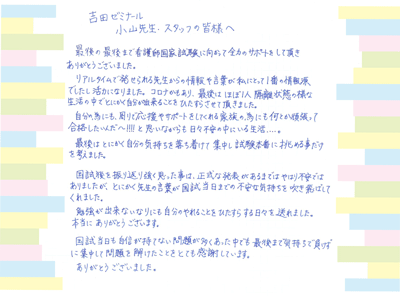 吉田ゼミナール
小山先生・スタッフの皆様へ
最後の最後まで看護師国家試験に向けて全力のサポートをして頂き
ありがとうございました。
リアルタイムで発せられる先生からの情報や言葉が私にとって1番の情報源
でしたし活力になりました。コロナ禍もあり、最後はほぼ1人隔離状態の様な
生活の中でとにかく自分が出来ることをひたすらさせて頂きました。
自分の為にも、周りで応援やサポートをしてくれる家族の為にも何とか頑張って
合格したいんだへ!!!!と思いながらも日々不安の中にいる生活‥‥。
最後はとにかく自分の気持ちを落ち着けて集中し試験本番に挑める事だけ
を考えました。
国試験を振り返り強く思った事は、正式な発表があるまではやはり不安では
ありましたが、とにかく先生の言葉が国試当日までの不安な気持ちを吹き飛ばして
くれました。
勉強が出来ないなりにも自分のやれることをひたすらする日々を送れました。
本当にありがとうございます。
国試当日も自信が持てない問題が多くあった中でも最後まで気持ちで負けず
に集中して問題を解けたことをとても感謝しています。
ありがとうございました。